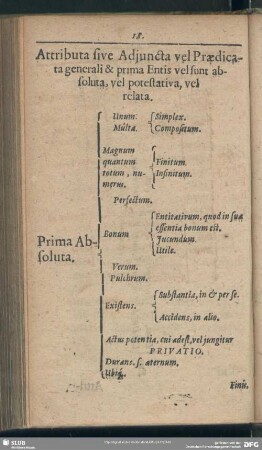 18.
Attributa sive Adjuncta vel Prædica-
ta generali & prima Entis vel sunt ab-
soluta, vel potestativa, vel
relata.
Unum: Simplex.
Multa. Compositum.
Magnum
quantum Finitum.
totum, nu- Infinitum.
merus.
Perfectum.
Entitativum, quod in sua
essentia bonum est.
Bonum
Jucundum.
Utile.
Prima Ab-
soluta.
Verum.
Pulchrum.
Substantia, in & per se.
Existens.
Accidens, in alio.
Actus potentia, cui adest, vel jungitur
PRIVATIO.
Durans. s. æternum.
Ubiq́.
Finis.
SLUB
DFG